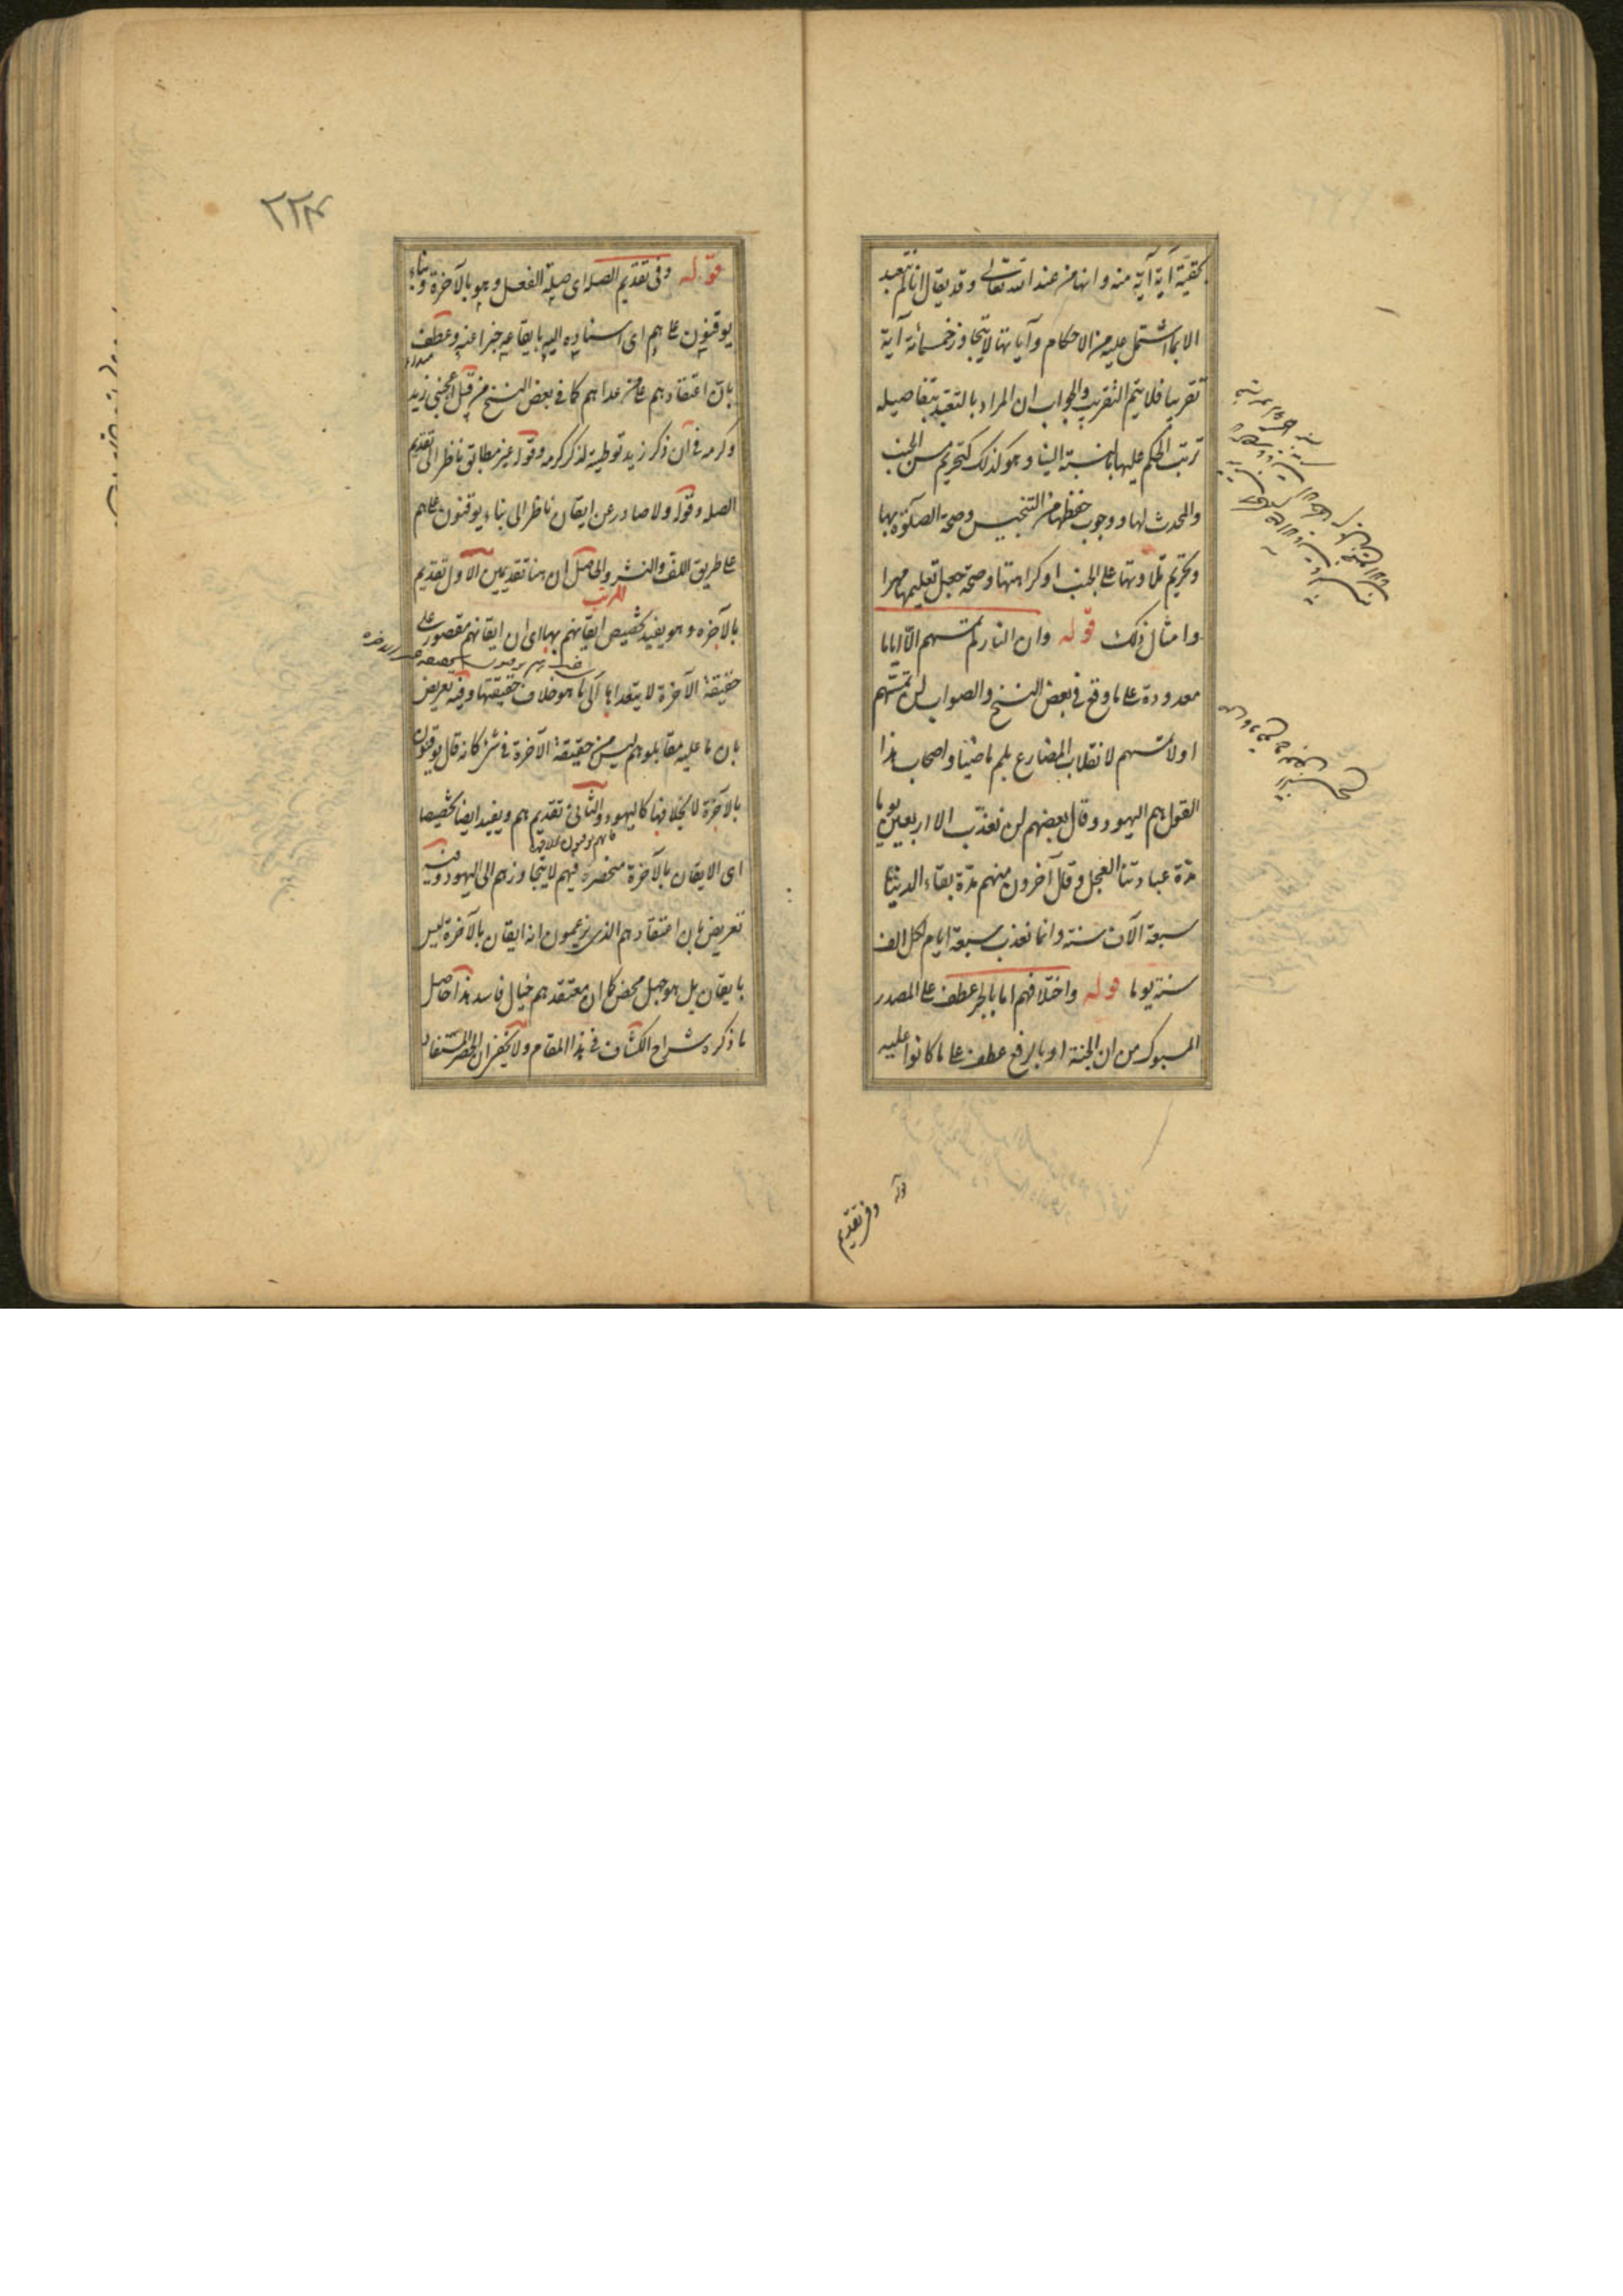 بحقيّة آية آية منه وانها من عند الله تعالى وقد يقال انا لم نتعبد
الا بما اشتمل عليه من الاحكام وآياتها لا يتجاوز خمسمائة آية
تقريبا فلا يتم التقريب والجواب ان المراد بالتعبد بتفاصيله
ترتب الحكم عليها بالنسبة الينا وهو كذلك كتحريم مس الجنب
والمحدث لها ووجوب حفظها من التنجيس وصحة الصلوة بها
وتحريم تلاوتها على الجنب او كراهتها وصحة جعل تعليمها مهرا
وامثال ذلك قوله وان النار لم تمسهم الّا اياما
معدودة على ما وقع في بعض النسخ والصواب لن تمسّهم
او لا تمسهم لانقلاب المضارع بلم ماضيا واصحاب هذا
القول هم اليهود وقال بعضهم لن نعذّب الا اربعين يوما
مدّة عبادتنا العجل وقال آخرون منهم مدّة بقاء الدنيا
سبعة الآف سنة وانما نعذب سبعة ايام لكل الف
سنة يوما قوله واختلافهم اما بالجر عطف على المصدر
المسبوك من ان الجنة او بالرفع عطف على ما كانوا عليه
قوله وفي تقديم
٢٢٤
قوله وفي تقديم الصلة اى صلة الفعل وهو بالآخرة وبناء
يوقنون على هم اى اسناده اليه بايقاعه خبرا عنه وعطف
بان اعتقادهم على من عداهم كما في بعض النسخ من قبيل اعجبني زيد
وكرمه في ان ذكر زيد توطية لذكر كرمه وقوله غير مطابق ناظر الى تقديم
الصلة وقوله ولا صادر عن ايقان ناظر الى بناء يوقنون على هم
على طريق اللف والنشر والحاصل ان هنا تقديمين الاول تقديم
المرتب
بالآخرة وهو يفيد تخصيص ايقانهم بها اى ان ايقانهم مقصور على
حقيقة الآخرة لا يتعداها الى ما هو خلاف حقيقتها وفيه تعريض
بان ما عليه مقابلوهم ليس من حقيقة الآخرة في شئ كانه قال يوقنون
بالآخرة لا بخلافها كاليهود والثاني تقديم هم ويفيد ايضا تخصيصا
اى الايقان بالآخرة منحصرة فيهم لا يتجاوزهم الى اليهود وفيه
تعريض بان اعتقادهم الذى يزعمون انه ايقان بالآخرة ليس
بايقان بل هو جهل محض كما ان معتقدهم خيال فاسد هذا حاصل
ما ذكره شراح الكشاف في هذا المقام ولا يخفى ان الحصر المستفاد